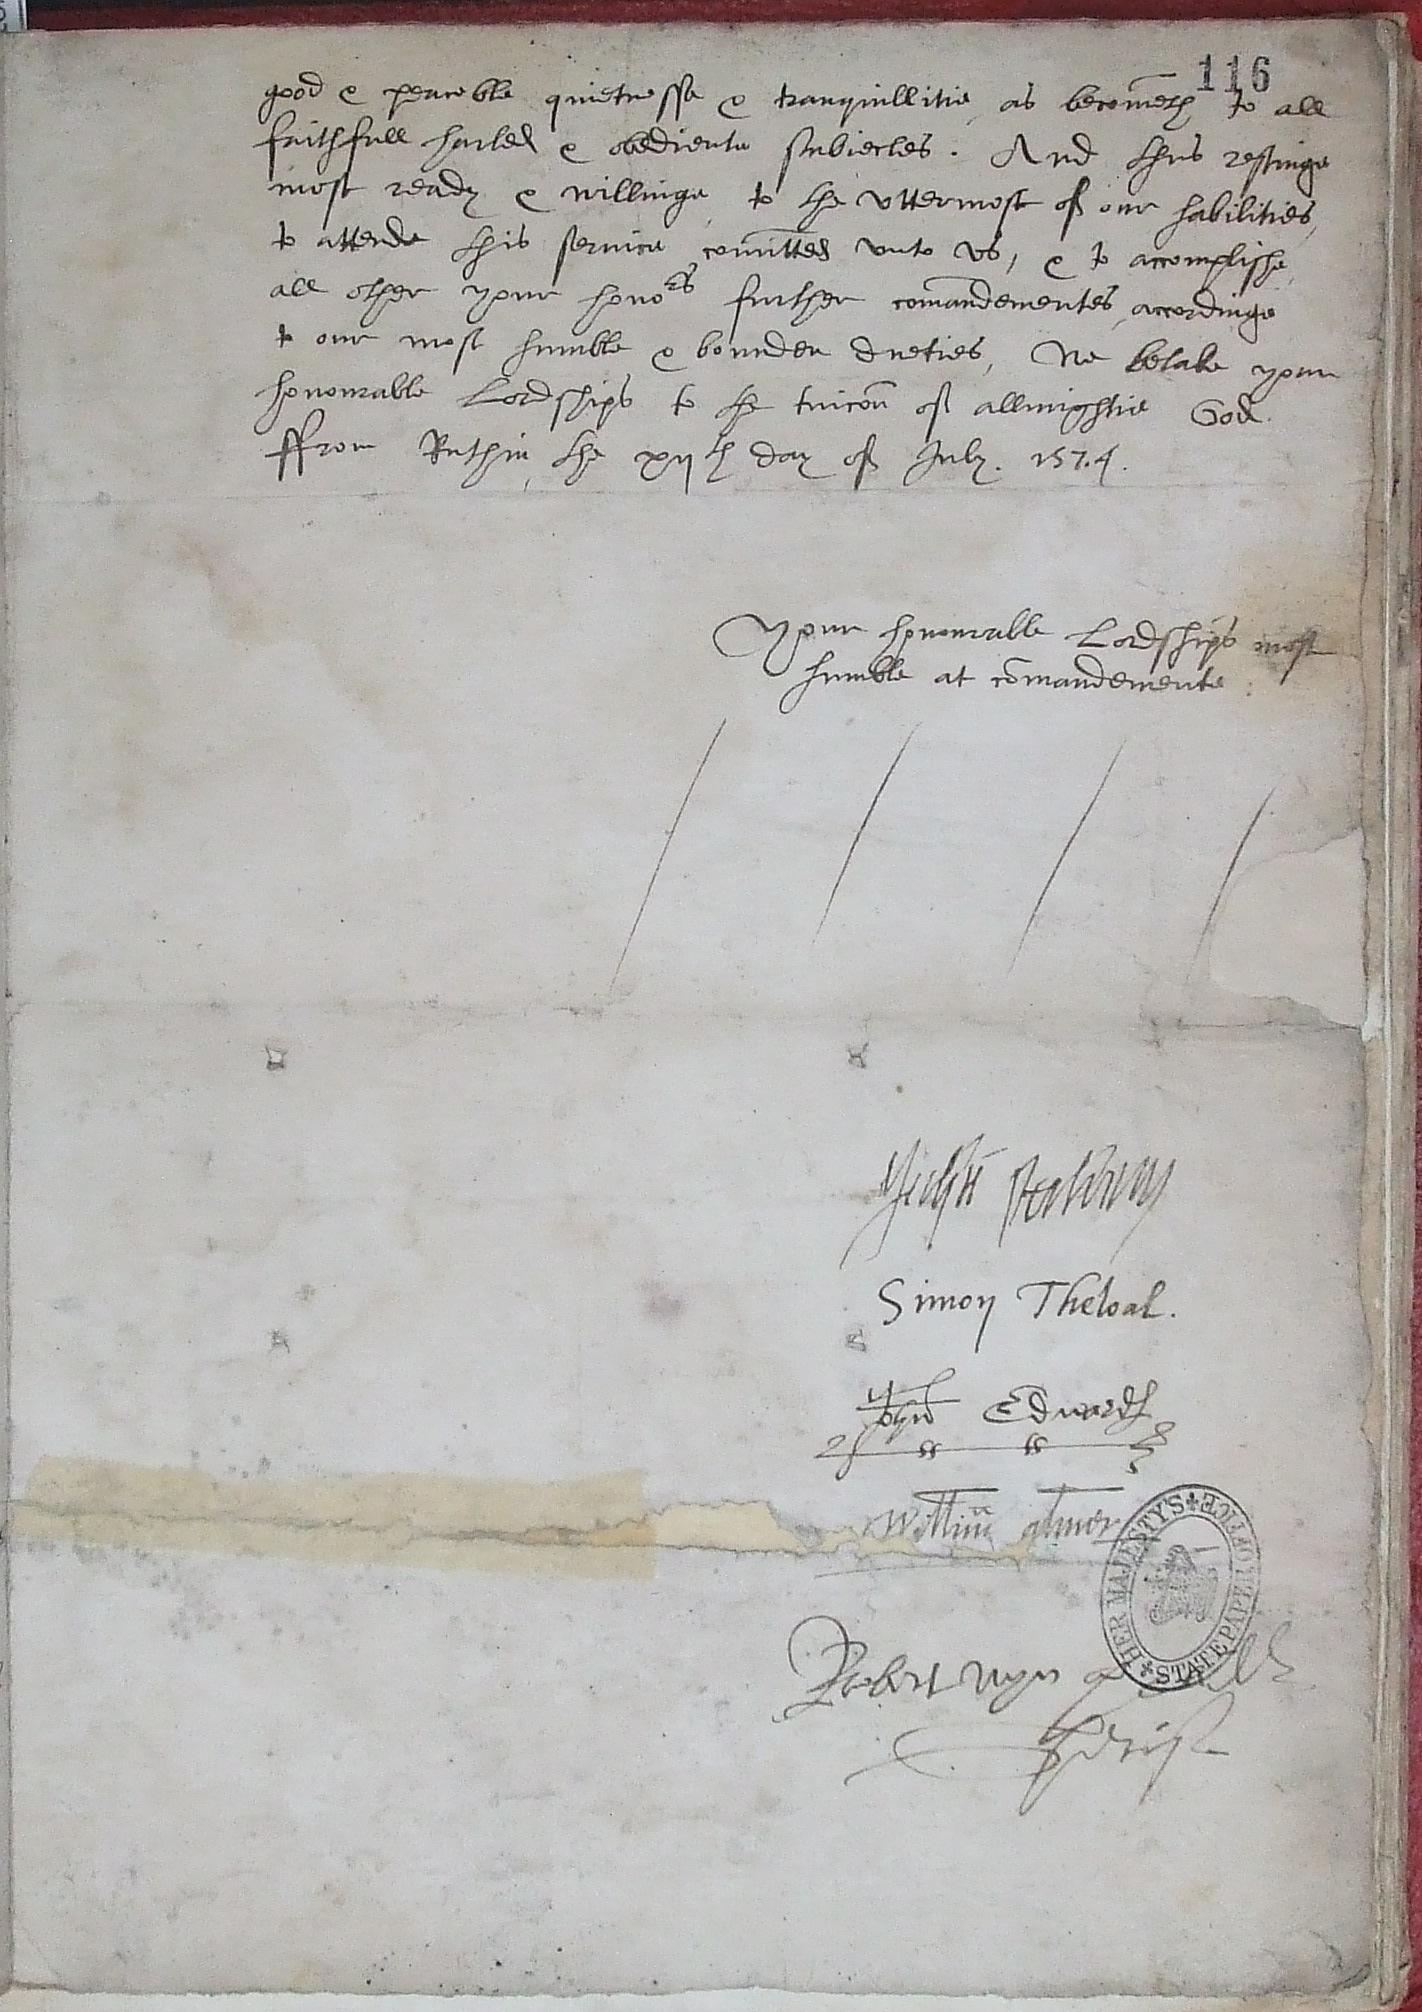 116
good & peaceble quietnesse & tranquillitie, as becometh to all
faithfull harted & obediente subiectes. And thus restinge
most ready & willinge, to the vttermost of our habilities,
to attende this service comitted vnto vs, & to accomplishe
all other your honors further comandementes, accordinge
to our most humble & bounden dueties, We betake your
honourable Lordships to the tuicon of allmightie God.
ffrom Ruthin, the xijth day of July. 1574.
Your honourable Lordships most
humble at comandemente:
Simon Theloal.
John Edwards
Willim almer
Robert wyn
HER MAJESTY'S STATE PAPER OFFICE